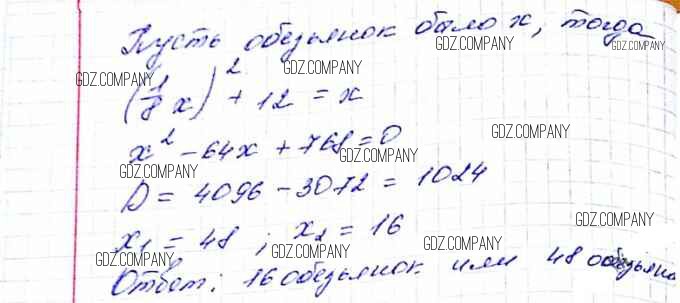 Пусть обезьянок было x, тогда
(1/8 x)² + 12 = x
x² - 64x + 768 = 0
D = 4096 - 3072 = 1024
x₁ = 48 ; x₂ = 16
Ответ: 16 обезьянок или 48 обезьян
GDZ.COMPANY
GDZ.COMPANY
GDZ.COMPANY
GDZ.COMPANY
GDZ.COMPANY
GDZ.COMPANY
GDZ.COMPANY
GDZ.COMPANY
GDZ.COMPANY
GDZ.COMPANY
GDZ.COMPANY